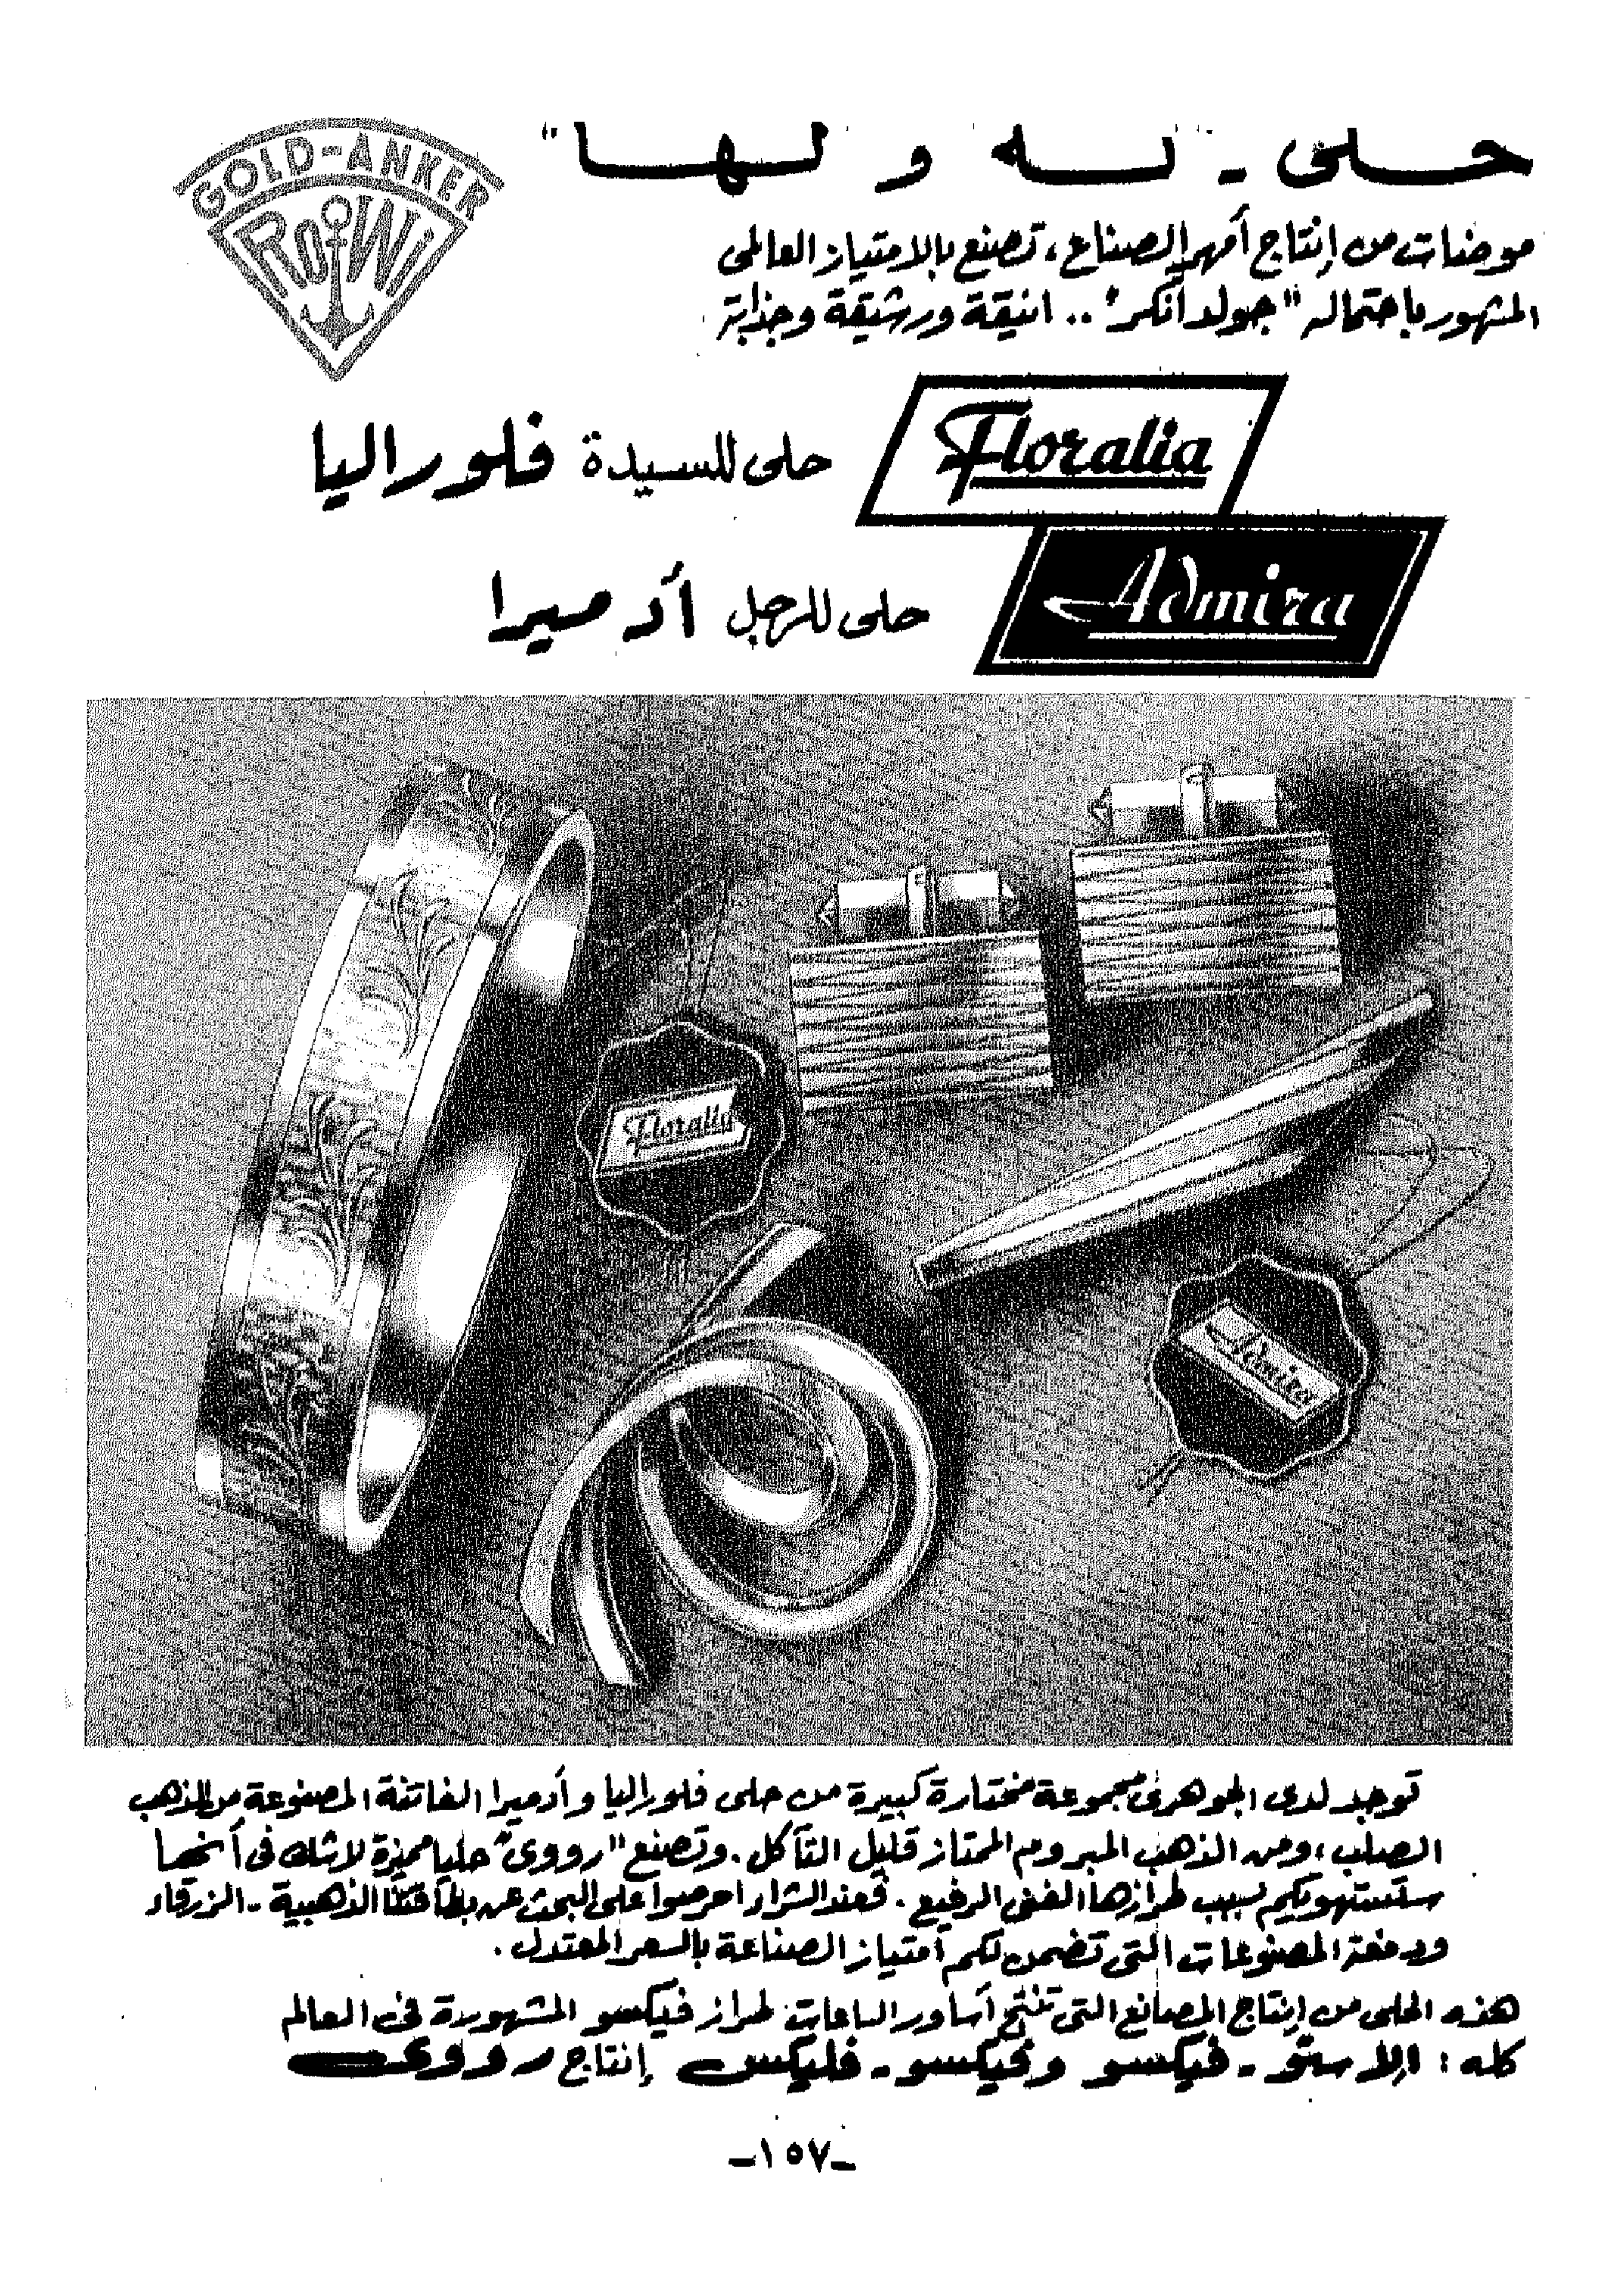 حلى - "له و لها"
GOLD-ANKER
ROWI
موضات من إنتاج أمهر الصناع، تصنع بالامتياز العالمى
المشهور باحتماله "جولد أنكر" .. انيقة ورشيقة وجذابة
Floralia
حلى للسيدة فلوراليا
Admira
حلى للرجل أدميرا
Floralia
Admira
توجد لدى الجوهرى مجموعة مختارة كبيرة من حلى فلوراليا وأدميرا الفاتنة المصنوعة من الذهب
الصلب، ومن الذهب المبروم الممتاز قليل التآكل. وتصنع "رووى" حليا مميزة لاشك فى أنها
ستستهويكم بسبب طرازها الفنى الرفيع. فعند الشراء احرصوا على البحث عن بطاقتنا الذهبية - الزرقاء
ودمغة المصنوعات التى تضمن لكم امتياز الصناعة بالسعر المعتدل.
هذه الحلى من إنتاج المصانع التى تنتج أساور الساعات طراز فيكسو المشهورة فى العالم
كله: إلاستو - فيكسو وفيكسو - فليكس إنتاج رووى
-١٥٧-